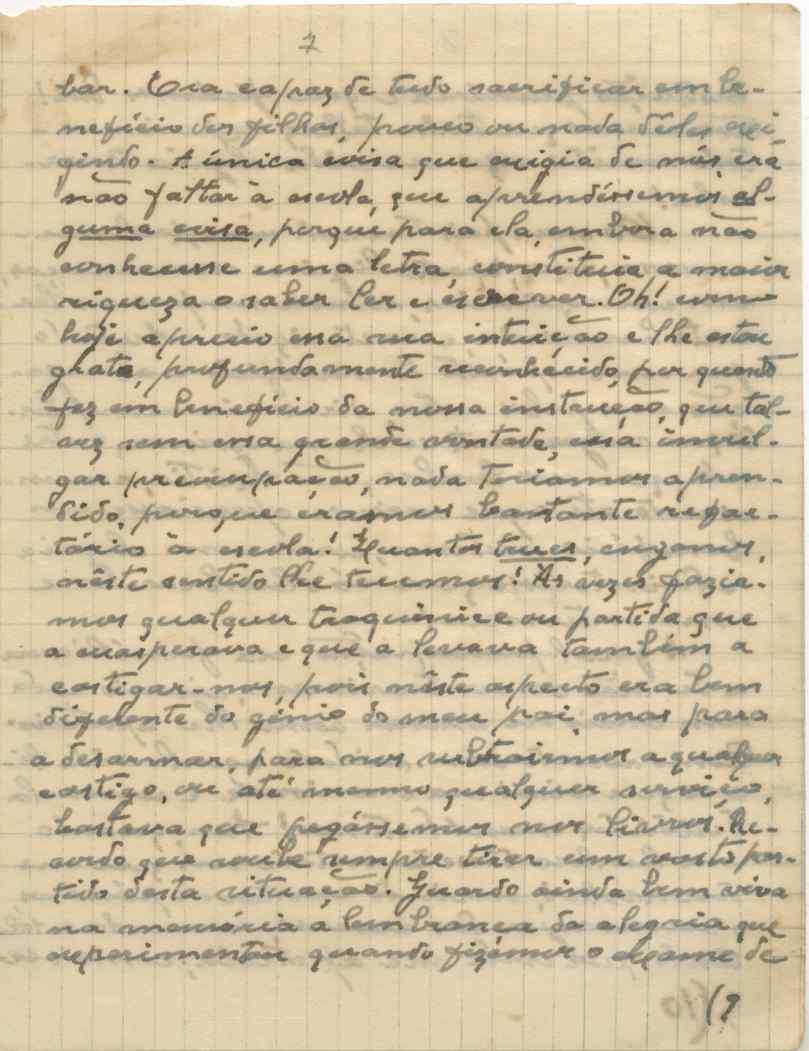 7
bar. Era capaz de tudo sacrificar em be-
nefício dos filhos, pouco ou nada dêles exi
gindo. A única coisa que exigia de nós era
não faltar à escola, que aprendêssemos al-
guma coisa, porque para ela, embora não
conhecesse uma letra, constituia a maior
riqueza o saber ler e escrever. Oh! como
hoje aprecio essa sua intuição e lhe estou
grato, profundamente reconhecido, por quanto
fez em benefício da nossa instrução, que tal-
vez sem essa grande vontade, essa invul-
gar preocupação, nada teriamos apren-
dido, porque éramos bastante refrac-
tário à escola! Quantos truces, enganos,
nêste sentido lhe tecemos! Às vezes fazia-
mos qualquer traquinice ou partida que
a exasperava e que a levava também a
castigar-nos, pois nêste aspecto era bem
diferente do génio do meu pai, mas para
a desarmar, para nos subtrairmos a qualquer
castigo, ou até mesmo qualquer serviço,
bastava que pegássemos nos livros. Re-
cordo que soube sempre tirar um vasto par-
tido desta situação. Guardo ainda bem viva
na memória a lembrança da alegria que
experimentou quando fizemos o exame de
(9